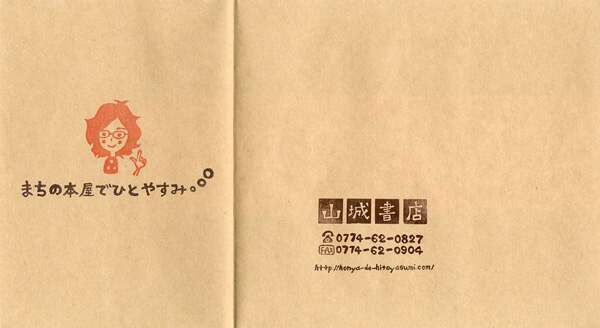 まちの本屋でひとやすみ。
山城書店
☎0774-62-0827
FAX 0774-62-0904
http://honya-de-hitoyasumi.com/